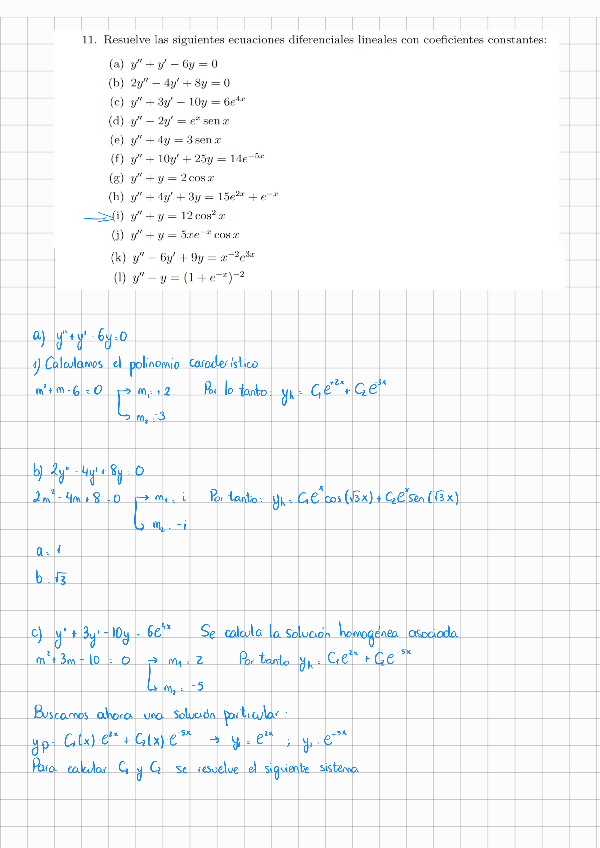 11. Resuelve las siguientes ecuaciones diferenciales lineales con coeficientes constantes:
(a) y'' + y' − 6y = 0
(b) 2y'' − 4y' + 8y = 0
(c) y'' + 3y' − 10y = 6e^{4x}
(d) y'' − 2y' = e^x sen x
(e) y'' + 4y = 3 sen x
(f) y'' + 10y' + 25y = 14e^{−5x}
(g) y'' + y = 2 cos x
(h) y'' + 4y' + 3y = 15e^{2x} + e^{−x}
(i) y'' + y = 12 cos² x
(j) y'' + y = 5xe^{−x} cos x
(k) y'' − 6y' + 9y = x^{−2}e^{3x}
(l) y'' − y = (1 + e^{−x})^{−2}
a) y'' + y' - 6y = 0
1) Calculamos el polinomio característico
m² + m - 6 = 0 → m₁ = +2 Por lo tanto: y_h = C₁e^{+2x} + C₂e^{-3x}
↳ m₂ = -3
b) 2y'' - 4y' + 8y = 0
2m² - 4m + 8 = 0 → m₁ = i Por tanto: y_h = C₁e^x cos(√3x) + C₂e^x sen(√3x)
↳ m₂ = -i
a = 1
b = √3
c) y'' + 3y' - 10y = 6e^{4x} Se calcula la solución homogénea asociada
m² + 3m - 10 = 0 → m₁ = 2 Por tanto y_h = C₁e^{2x} + C₂e^{-5x}
↳ m₂ = -5
Buscamos ahora una solución particular:
yp = C₁(x) e^{2x} + C₂(x) e^{-5x} → y₁ = e^{2x} ; y₂ = e^{-5x}
Para calcular C₁ y C₂ se resuelve el siguiente sistema